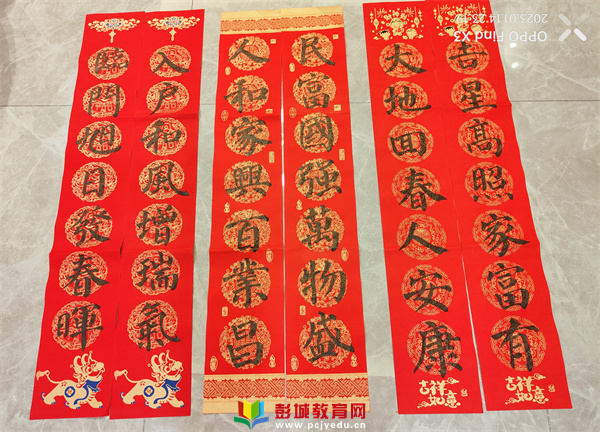 OPPO Find X3
2025.01.14 23:19
吉星髙照家富有
吉祥如意
大地回春人安康
吉祥如意
民富國强萬物盛
人和家興百業昌
入户和風增瑞氣
臨門旭日發春暉
彭城教育网
www.pcjyedu.cn